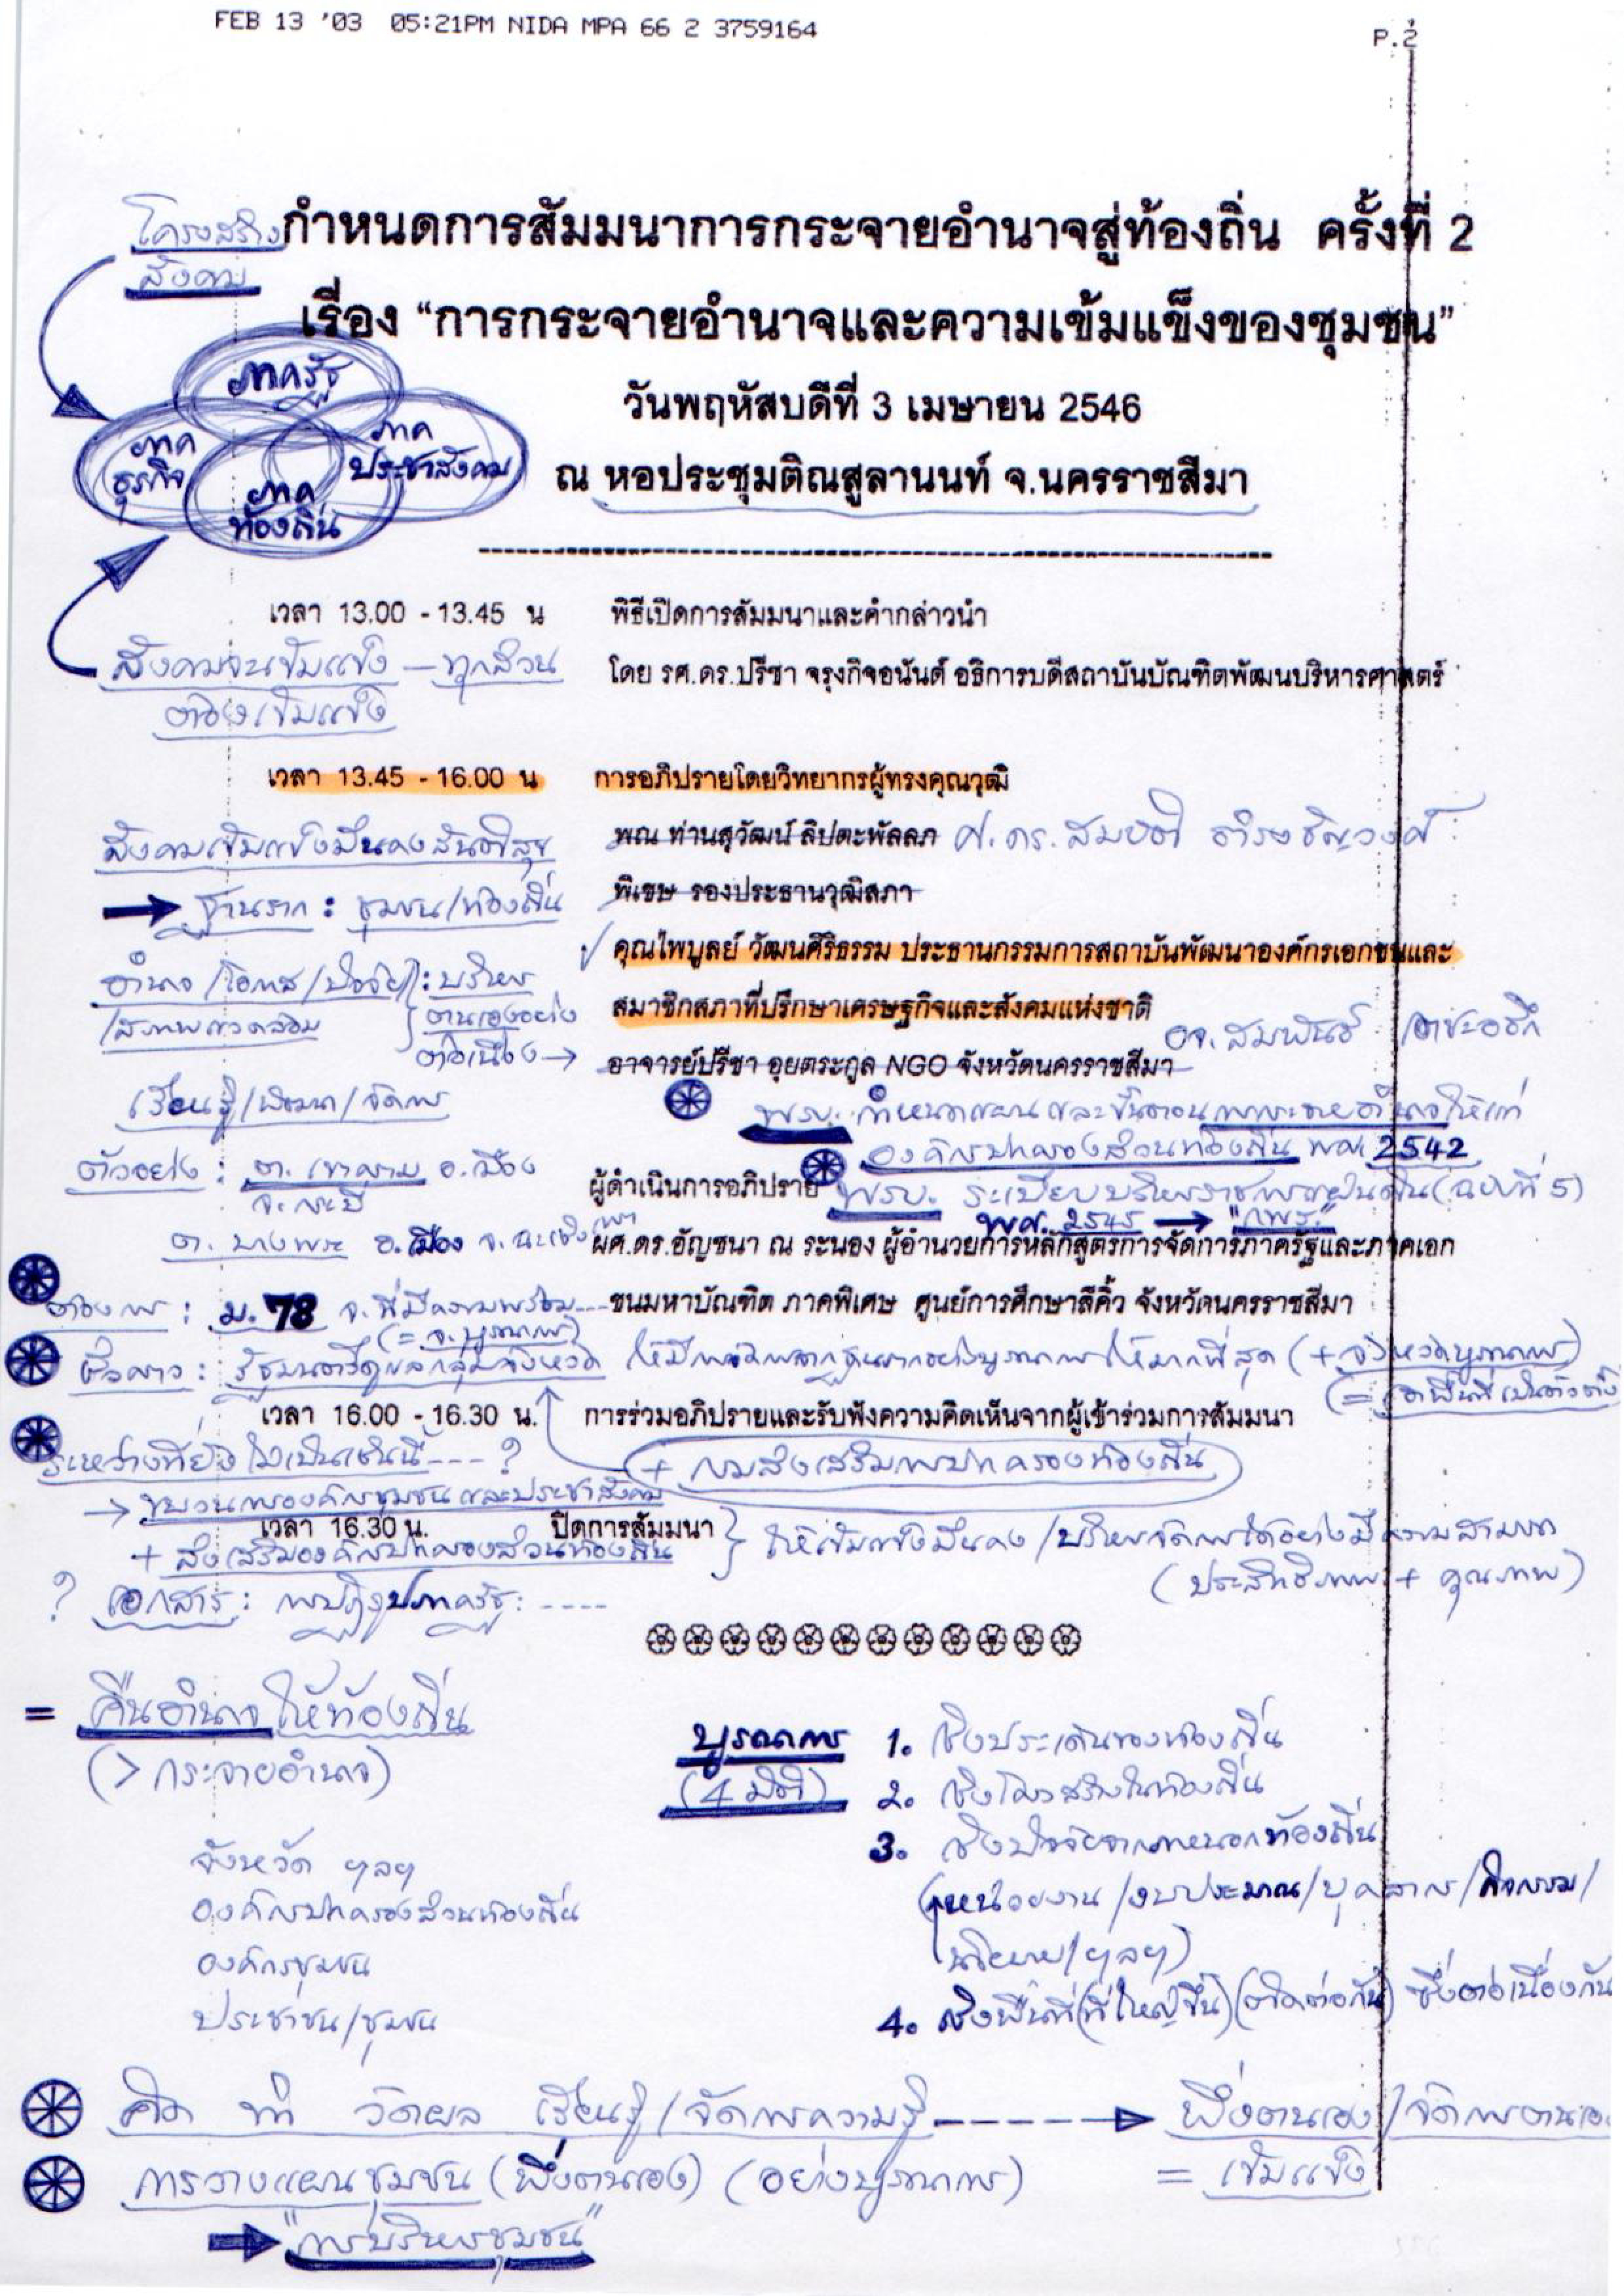 FEB 13 '03 05:21PM NIDA MPA 66 2 3759164 P.2
โครงสร้าง
สังคม
กำหนดการสัมมนาการกระจายอำนาจสู่ท้องถิ่น ครั้งที่ 2
เรื่อง “การกระจายอำนาจและความเข้มแข็งของชุมชน”
วันพฤหัสบดีที่ 3 เมษายน 2546
ณ หอประชุมติณสูลานนท์ จ.นครราชสีมา
ภาครัฐ
ภาค
ธุรกิจ
ภาค
ประชาสังคม
ภาค
ท้องถิ่น
เวลา 13.00 - 13.45 น พิธีเปิดการสัมมนาและคำกล่าวนำ
โดย รศ.ดร.ปรีชา จรุงกิจอนันต์ อธิการบดีสถาบันบัณฑิตพัฒนบริหารศาสตร์
สังคมจะเข้มแข็ง – ทุกส่วน
ต้องเข้มแข็ง
เวลา 13.45 - 16.00 น การอภิปรายโดยวิทยากรผู้ทรงคุณวุฒิ
พณ ท่านสุวัฒน์ ลิปตะพัลลภ ศ.ดร.สมบัติ ธำรงธัญวงศ์
พิเชษ รองประธานวุฒิสภา
คุณไพบูลย์ วัฒนศิริธรรม ประธานกรรมการสถาบันพัฒนาองค์กรเอกชนและ
สมาชิกสภาที่ปรึกษาเศรษฐกิจและสังคมแห่งชาติ
อาจารย์ปรีชา อุยตระกูล NGO จังหวัดนครราชสีมา
อจ. สมพันธ์ เตชะอธิก
สังคมเข้มแข็งมั่นคงสันติสุข
→ ฐานราก : ชุมชน/ท้องถิ่น
อำนาจ/โอกาส/ปัจจัย : บริหาร
/สภาพแวดล้อม ตนเองอย่าง
ต่อเนื่อง →
เรียนรู้/พัฒนา/จัดการ
พรบ. กำหนดแผนและขั้นตอนการกระจายอำนาจให้แก่
องค์กรปกครองส่วนท้องถิ่น พศ. 2542
ตัวอย่าง : ต. เขาคราม อ. เมือง
จ. กระบี่
ต. บางพระ อ. เมือง จ. ฉะเชิงเทรา
ผู้ดำเนินการอภิปราย
พรบ. ระเบียบบริหารราชการแผ่นดิน (ฉบับที่ 5)
พศ. 2545 → "กพร."
ผศ.ดร.อัญชนา ณ ระนอง ผู้อำนวยการหลักสูตรการจัดการภาครัฐและภาคเอก
ชนมหาบัณฑิต ภาคพิเศษ ศูนย์การศึกษาสีคิ้ว จังหวัดนครราชสีมา
ต้องการ : ม. 78 จ. ที่มีความพร้อม ---
(= จ. บูรณาการ)
: รัฐมนตรีดูแลกลุ่มจังหวัด ให้มี อย่างบูรณาการให้มากที่สุด (+ จังหวัดบูรณาการ)
(= เอาพื้นที่เป็นตัวตั้ง
เวลา 16.00 - 16.30 น. การร่วมอภิปรายและรับฟังความคิดเห็นจากผู้เข้าร่วมการสัมมนา
ระหว่างที่ยังไม่เป็นเช่นนี้ ---- ?
+ กรมส่งเสริมการปกครองท้องถิ่น
→ ขบวนการองค์กรชุมชนและประชาสังคม
เวลา 16.30 น. ปิดการสัมมนา
+ ส่งเสริมองค์กรปกครองส่วนท้องถิ่น } ให้เข้มแข็งมั่นคง/บริหารจัดการได้อย่างมีความสามารถ
(ประสิทธิภาพ + คุณภาพ)
? เอกสาร : การปฏิรูปภาครัฐ : ----
= คืนอำนาจให้ท้องถิ่น
(> กระจายอำนาจ)
บูรณาการ
(4 มิติ)
1. เชิงประเด็นของท้องถิ่น
2. เชิงโครงสร้างในท้องถิ่น
3. เชิงปัจจัยจากภายนอกท้องถิ่น
(หน่วยงาน/งบประมาณ/บุคลากร/กิจกรรม/
นโยบาย/ฯลฯ)
4. เชิงพื้นที่(ที่ใหญ่ขึ้น)(ติดต่อกัน) ซึ่งต่อเนื่องกัน
จังหวัด ฯลฯ
องค์กรปกครองส่วนท้องถิ่น
องค์กรชุมชน
ประชาชน/ชุมชน
คิด ทำ วัดผล เรียนรู้/จัดการความรู้ -----→ พึ่งตนเอง/จัดการตนเอง
การวางแผนชุมชน (พึ่งตนเอง) (อย่างบูรณาการ) = เข้มแข็ง
→ "การบริหารชุมชน"